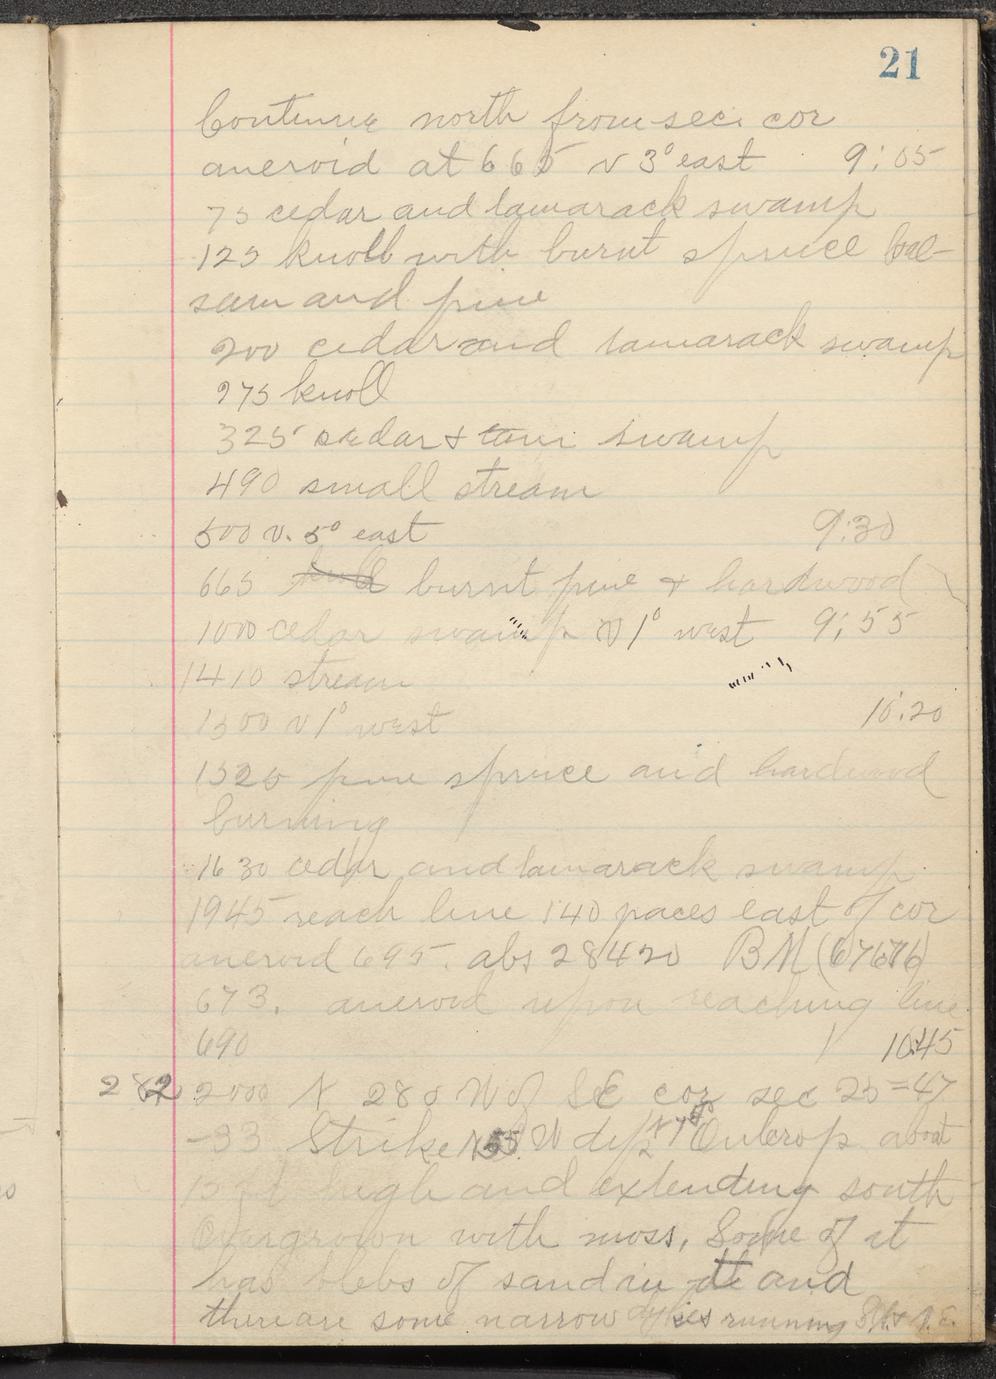 21
Continue north from sec. cor
aneroid at 665 v 3° east 9:05
75 cedar and tamarack swamp
125 knoll with burnt spruce bal-
sam and pine
200 cedar and tamarack swamp
275 knoll
325 cedar & tam swamp
490 small stream
500 v. 5° east 9:30
665 burnt pine & hardwood
1000 cedar swamp v 1° west 9:55
1410 stream
1500 v 1° west 10:20
1520 pine spruce and hardwood
burning
1630 cedar and tamarack swamp
1945 reach line 140 paces east of cor
aneroid 695. abs 28420 BM
673. aneroid upon reaching line
690 10:45
2000 N 280 W of SE cor sec 25=47
-33 Strike N55 W dip Outcrop about
15 ft high and extending south
Overgrown with moss, Some of it
has blebs of sand in it and
there are some narrow dykes running